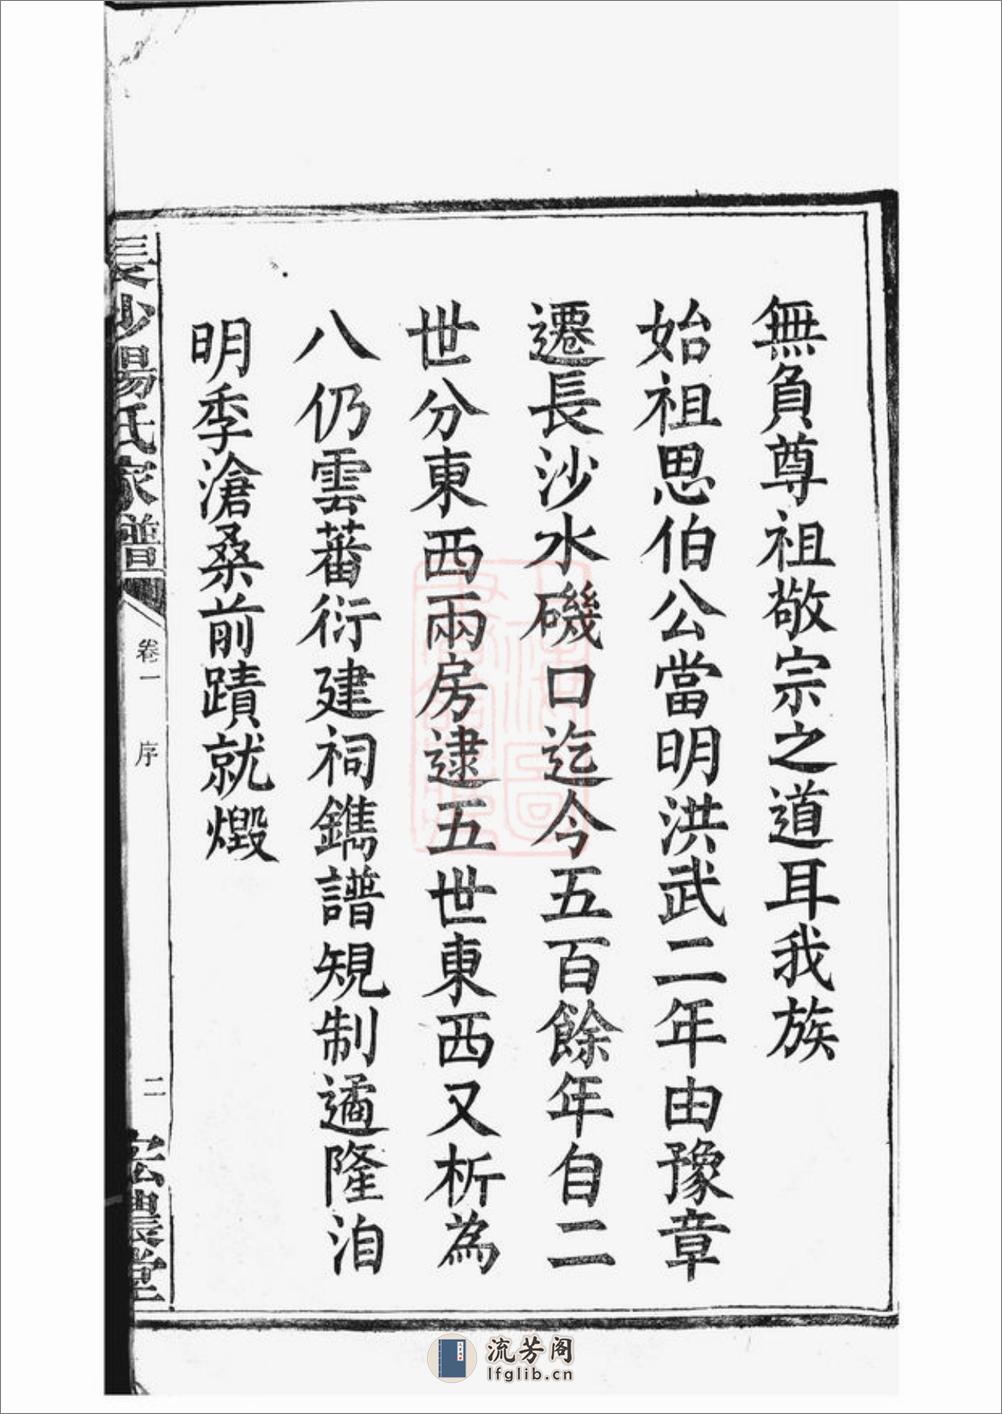 無負尊祖敬宗之道耳我族
始祖思伯公當明洪武二年由豫章
遷長沙水磯口迄今五百餘年自二
世分東西兩房逮五世東西又析為
八仍雲蕃衍建祠鐫譜規制遹隆洎
明季滄桑前蹟就燬
長沙楊氏家譜
卷一
序
二
宏農堂
流芳阁
lfglib.cn